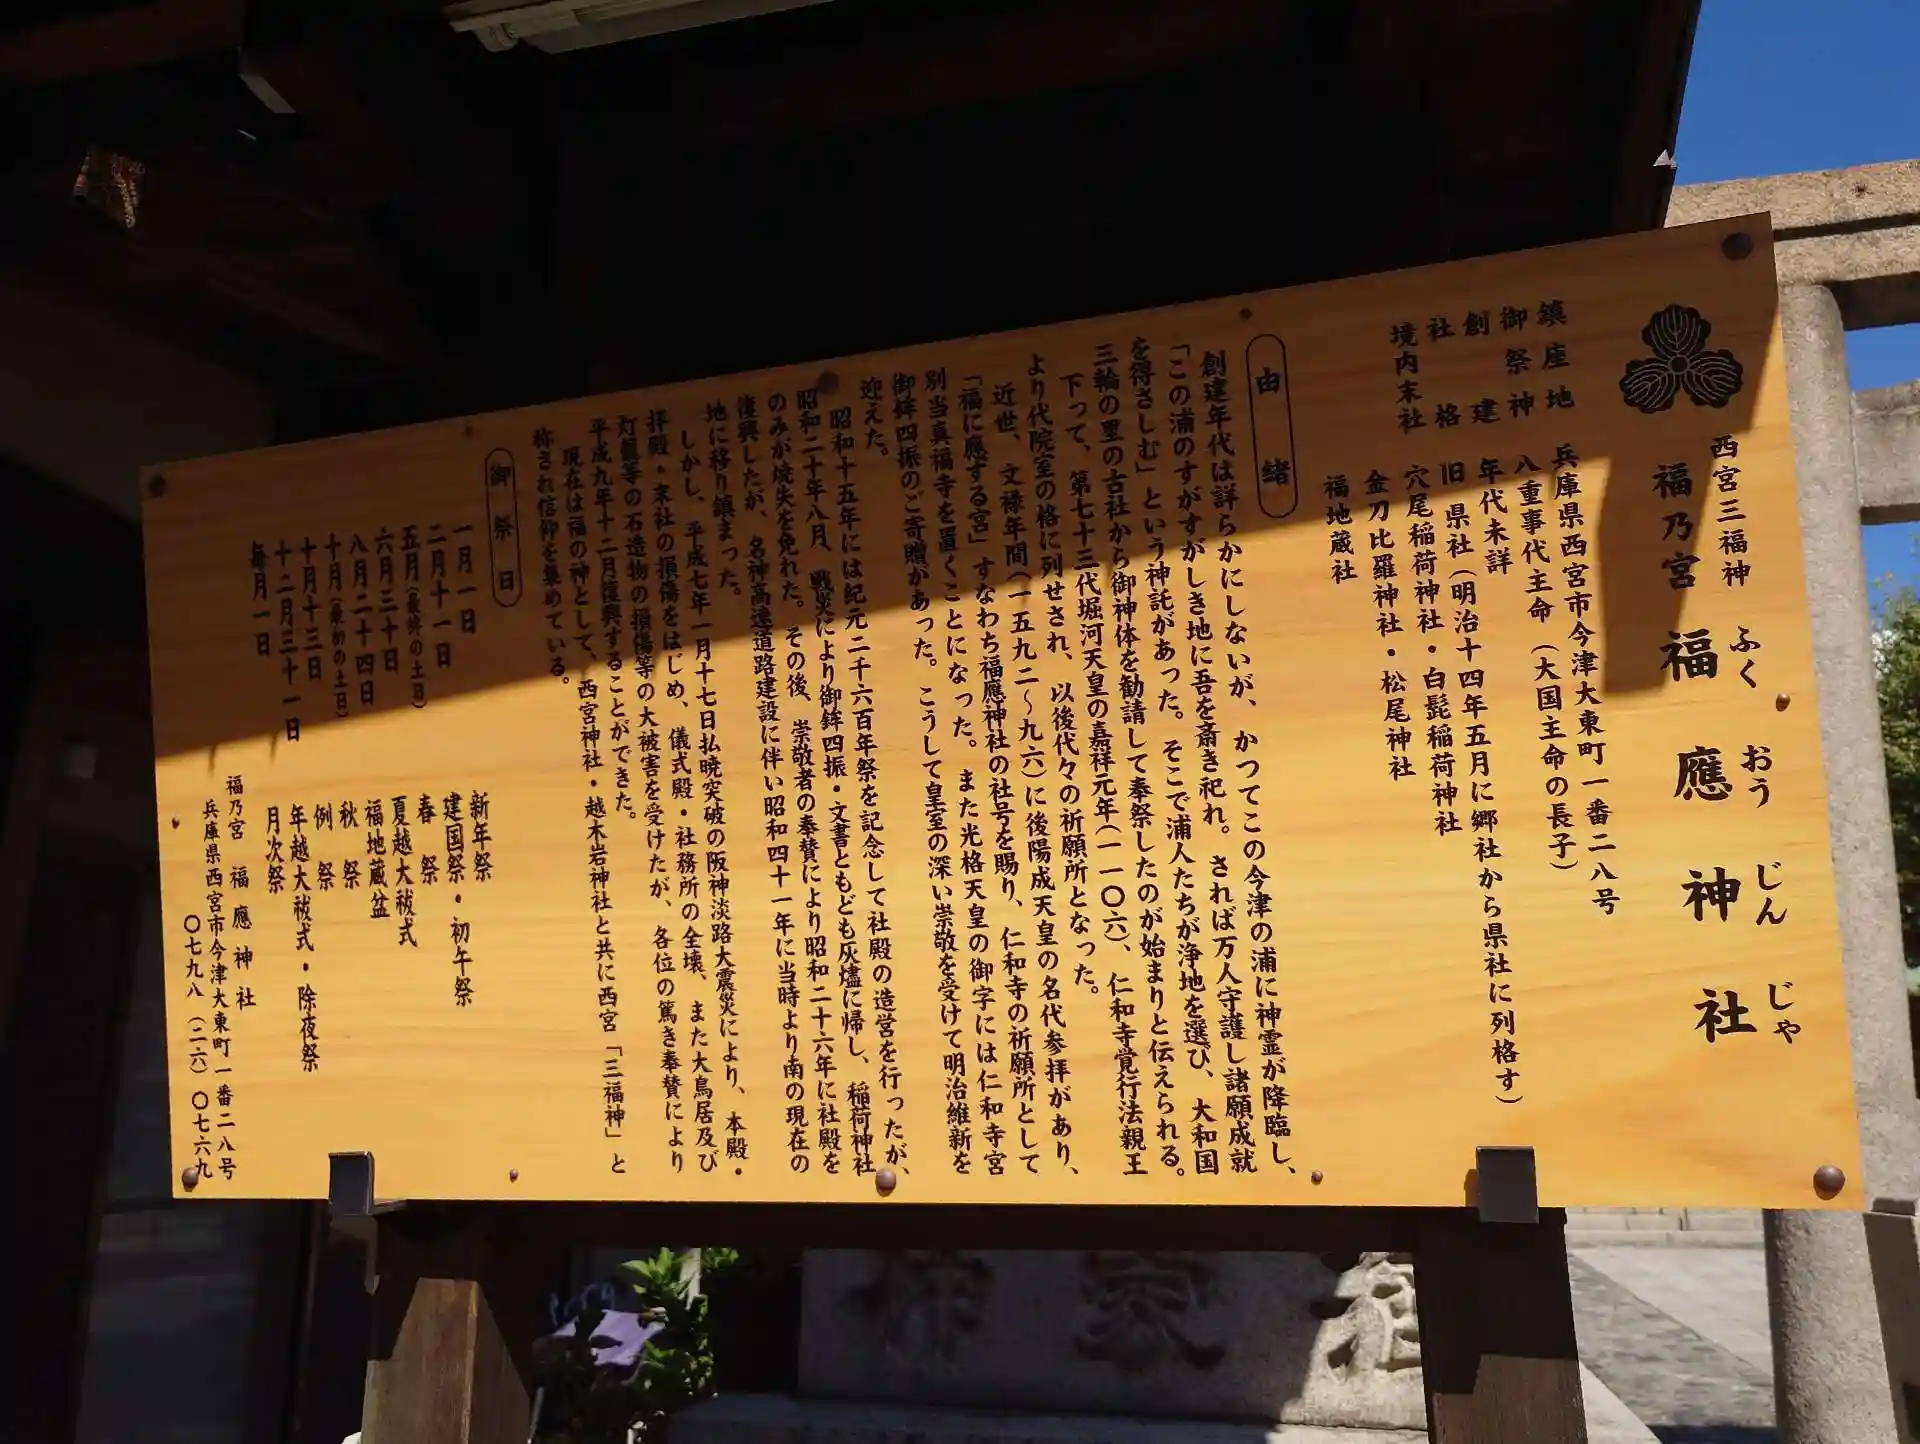 西宮三福神
福乃宮 福應神社
ふく おう じん じゃ
鎮座地 兵庫県西宮市今津大東町一番二八号
御祭神 八重事代主命（大国主命の長子）
創建 年代未詳
社格 旧県社（明治十四年五月に郷社から県社に列格す）
境内末社 穴尾稲荷神社・白髭稲荷神社
金刀比羅神社・松尾神社
福地蔵社
由緒
創建年代は詳らかにしないが、かつてこの今津の浦に神霊が降臨し、
「この浦のすがすがしき地に吾を斎き祀れ。されば万人守護し諸願成就
を得さしむ」という神託があった。そこで浦人たちが浄地を選び、大和国
三輪の里の古社から御神体を勧請して奉祭したのが始まりと伝えられる。
下って、第七十三代堀河天皇の嘉祥元年（一一〇六）、仁和寺覚行法親王
より代院室の格に列せされ、以後代々の祈願所となった。
近世、文禄年間（一五九二～九六）に後陽成天皇の名代参拝があり、
「福に應する宮」すなわち福應神社の社号を賜り、仁和寺の祈願所として
別当真福寺を置くことになった。また光格天皇の御字には仁和寺宮
御鉾四振のご寄贈があった。こうして皇室の深い崇敬を受けて明治維新を
迎えた。
昭和十五年には紀元二千六百年祭を記念して社殿の造営を行ったが、
昭和二十年八月、戦災により御鉾四振・文書ともども灰燼に帰し、稲荷神社
のみが焼失を免れた。その後、崇敬者の奉賛により昭和二十六年に社殿を
復興したが、名神高速道路建設に伴い昭和四十一年に当時より南の現在の
地に移り鎮まった。
しかし、平成七年一月十七日払暁突破の阪神淡路大震災により、本殿・
拝殿・末社の損傷をはじめ、儀式殿・社務所の全壊、また大鳥居及び
灯籠等の石造物の損傷等の大被害を受けたが、各位の篤き奉賛により
平成九年十二月復興することができた。
現在は福の神として、西宮神社・越木岩神社と共に西宮「三福神」と
称され信仰を集めている。
御祭日
一月一日 新年祭
二月十一日 建国祭・初午祭
五月（最終の土日） 春祭
六月三十日 夏越大祓式
八月二十四日 福地蔵盆
十月（最初の土日） 秋祭
十月十三日 例祭
十二月三十一日 年越大祓式・除夜祭
毎月一日 月次祭
福乃宮 福應神社
兵庫県西宮市今津大東町一番二八号
〇七九八（二六）〇七六九